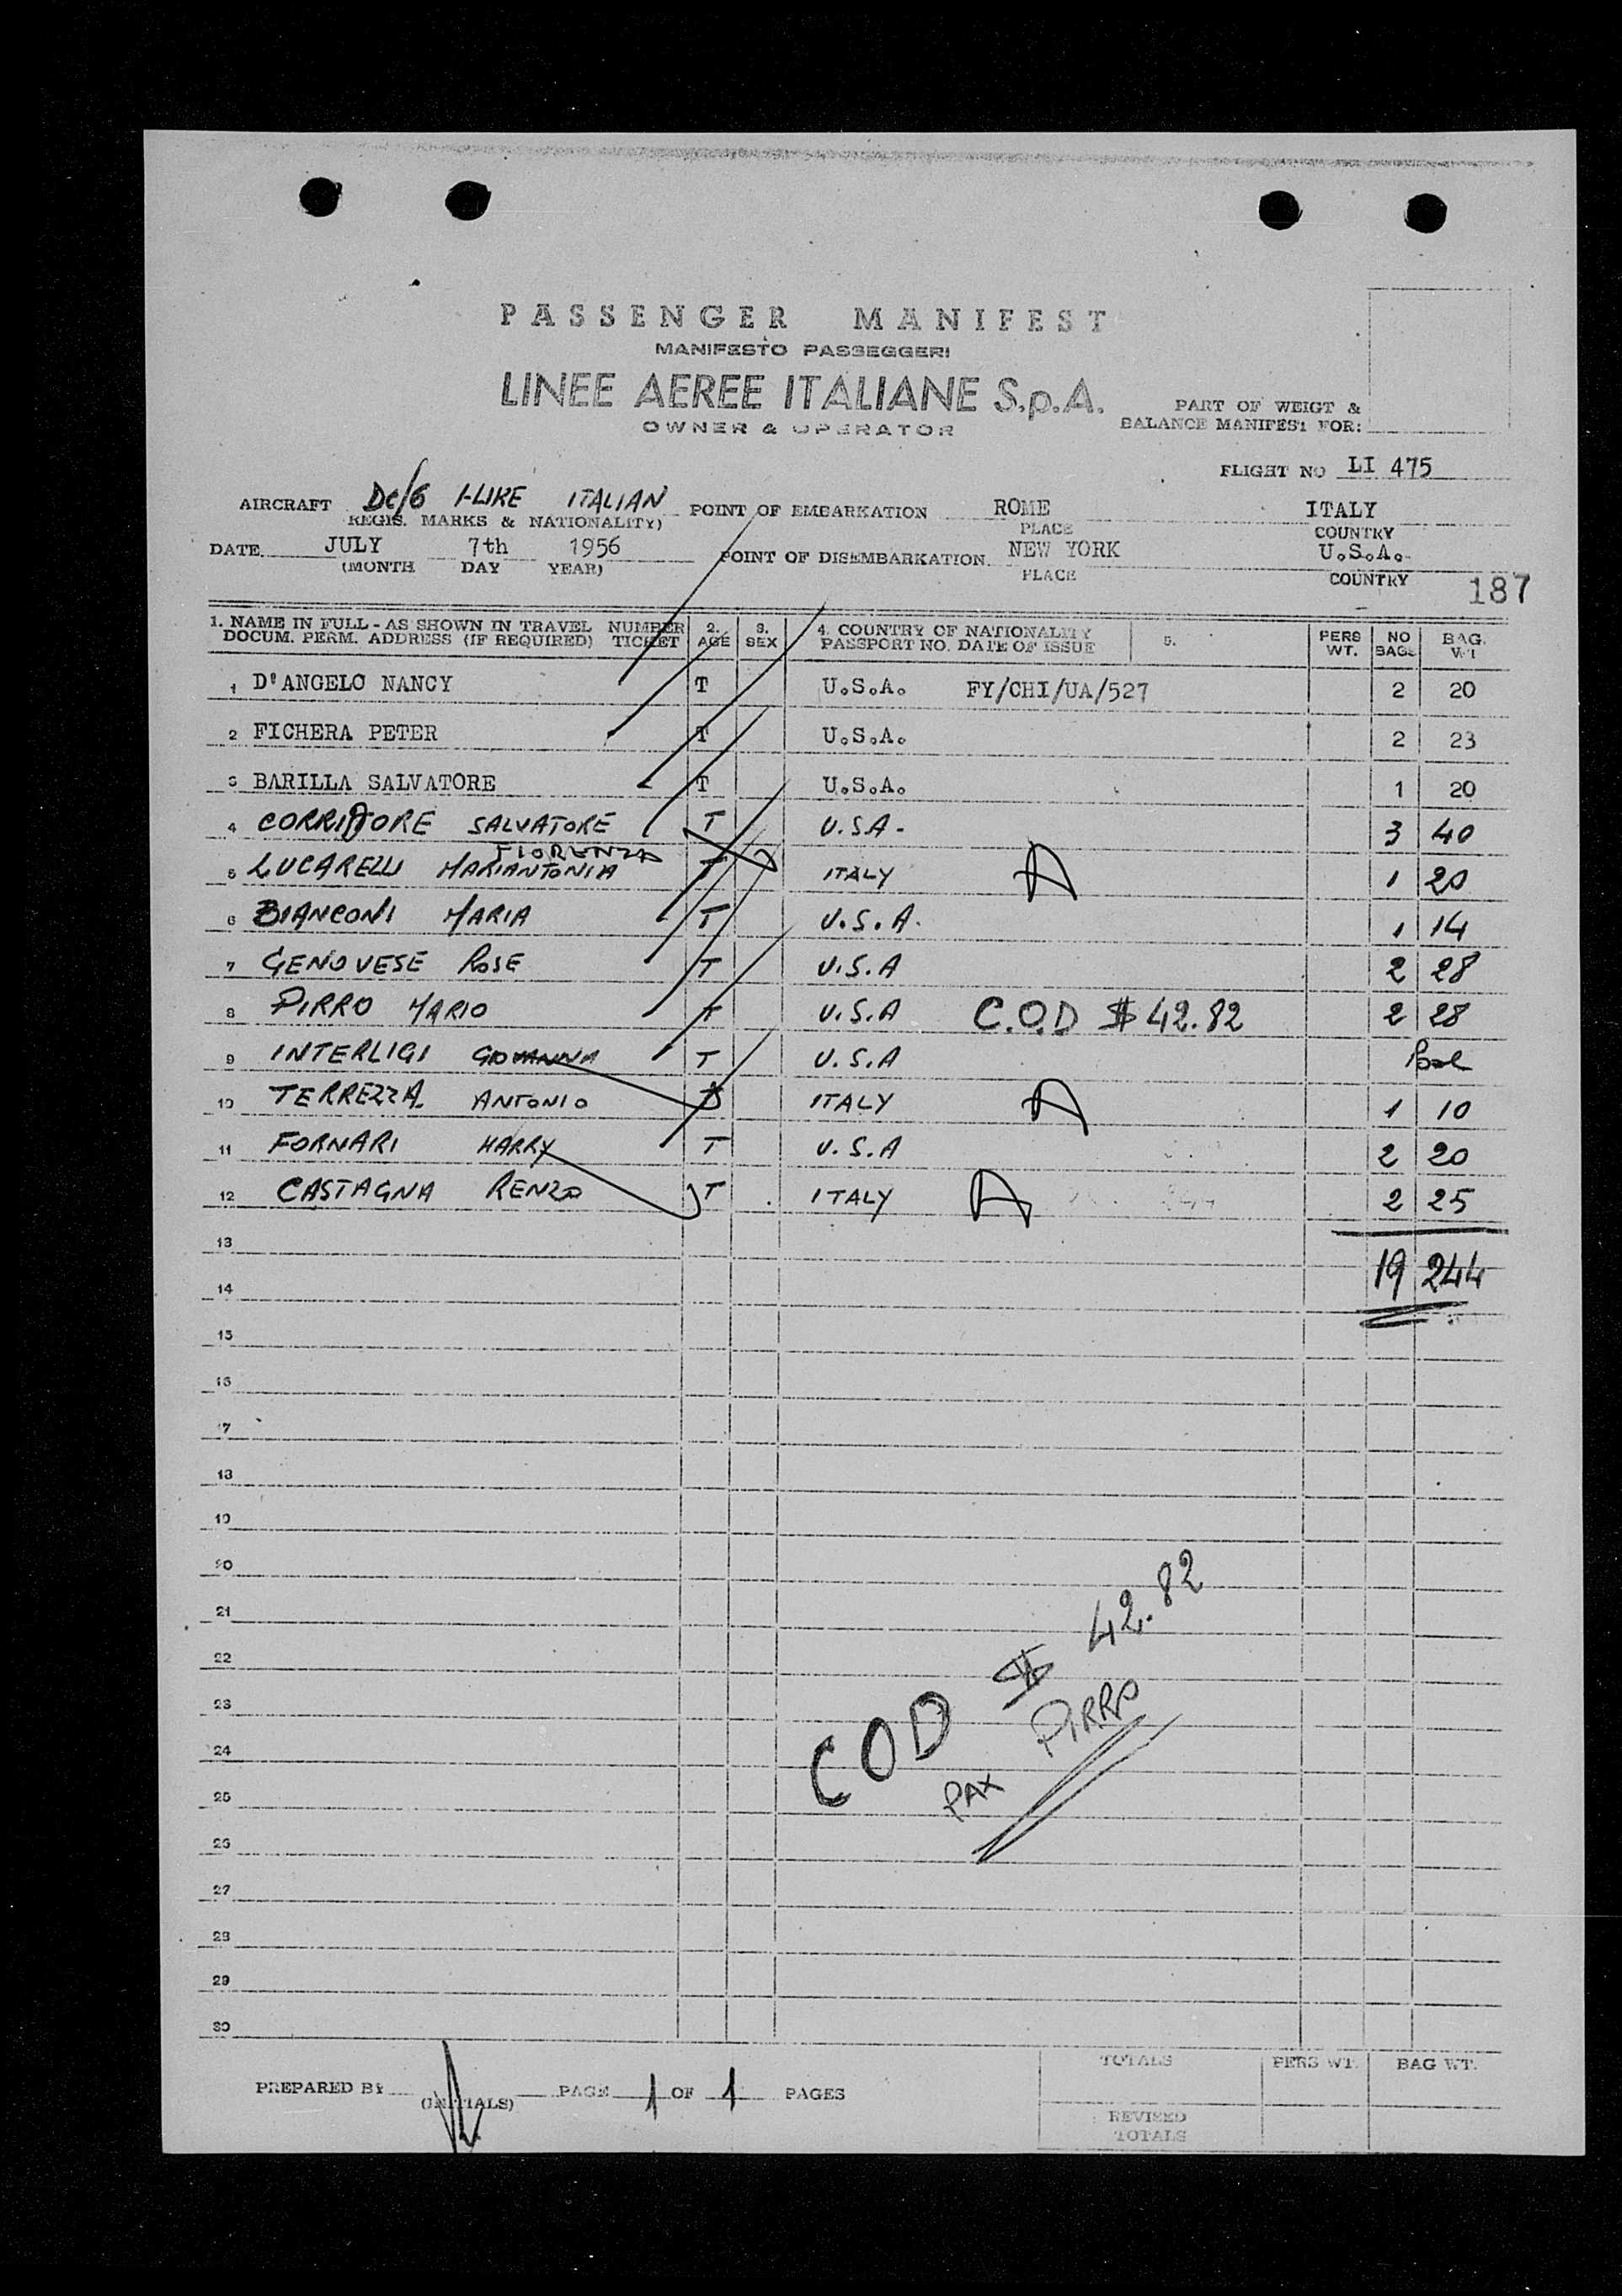 PASSENGER MANIFEST
MANIFESTO PASSEGGERI
LINEE AEREE ITALIANE S.p.A.
OWNER & OPERATOR
PART OF WEIGT &
BALANCE MANIFEST FOR:
FLIGHT NO LI 475
AIRCRAFT DC/6 I-LIKE ITALIAN POINT OF EMBARKATION ROME ITALY
REGIS. MARKS & NATIONALITY) PLACE COUNTRY
DATE JULY 7th 1956 POINT OF DISEMBARKATION NEW YORK U.S.A.
(MONTH DAY YEAR) PLACE COUNTRY
187
1. NAME IN FULL - AS SHOWN IN TRAVEL NUMBER 2. 3. 4. COUNTRY OF NATIONALITY 5. PERS NO BAG.
DOCUM. PERM. ADDRESS (IF REQUIRED) TICKET AGE SEX PASSPORT NO. DATE OF ISSUE WT. BAGS WT
1 D'ANGELO NANCY T U.S.A. FY/CHI/UA/527 2 20
2 FICHERA PETER T U.S.A. 2 23
3 BARILLA SALVATORE T U.S.A. 1 20
4 CORRIDORE SALVATORE T U.S.A- 3 40
FIORENZA
5 LUCARELLI MARIANTONIA T ITALY A 1 20
6 BIANCONI MARIA T U.S.A. 1 14
7 GENOVESE ROSE T U.S.A 2 28
8 PIRRO MARIO T U.S.A C.O.D $ 42.82 2 28
9 INTERLIGI GIOVANNA T U.S.A
10 TERREZZA ANTONIO T ITALY A 1 10
11 FORNARI HARRY T U.S.A 2 20
12 CASTAGNA RENZO T ITALY A 2 25
13
19 244
14
15
16
17
18
19
20
21
22
23
24
25
26
27
28
29
30
COD $ 42.82
PAX PIRRO
PREPARED BY (INITIALS) PAGE 1 OF 1 PAGES
TOTALS PERS WT. BAG WT.
REVISED
TOTALS